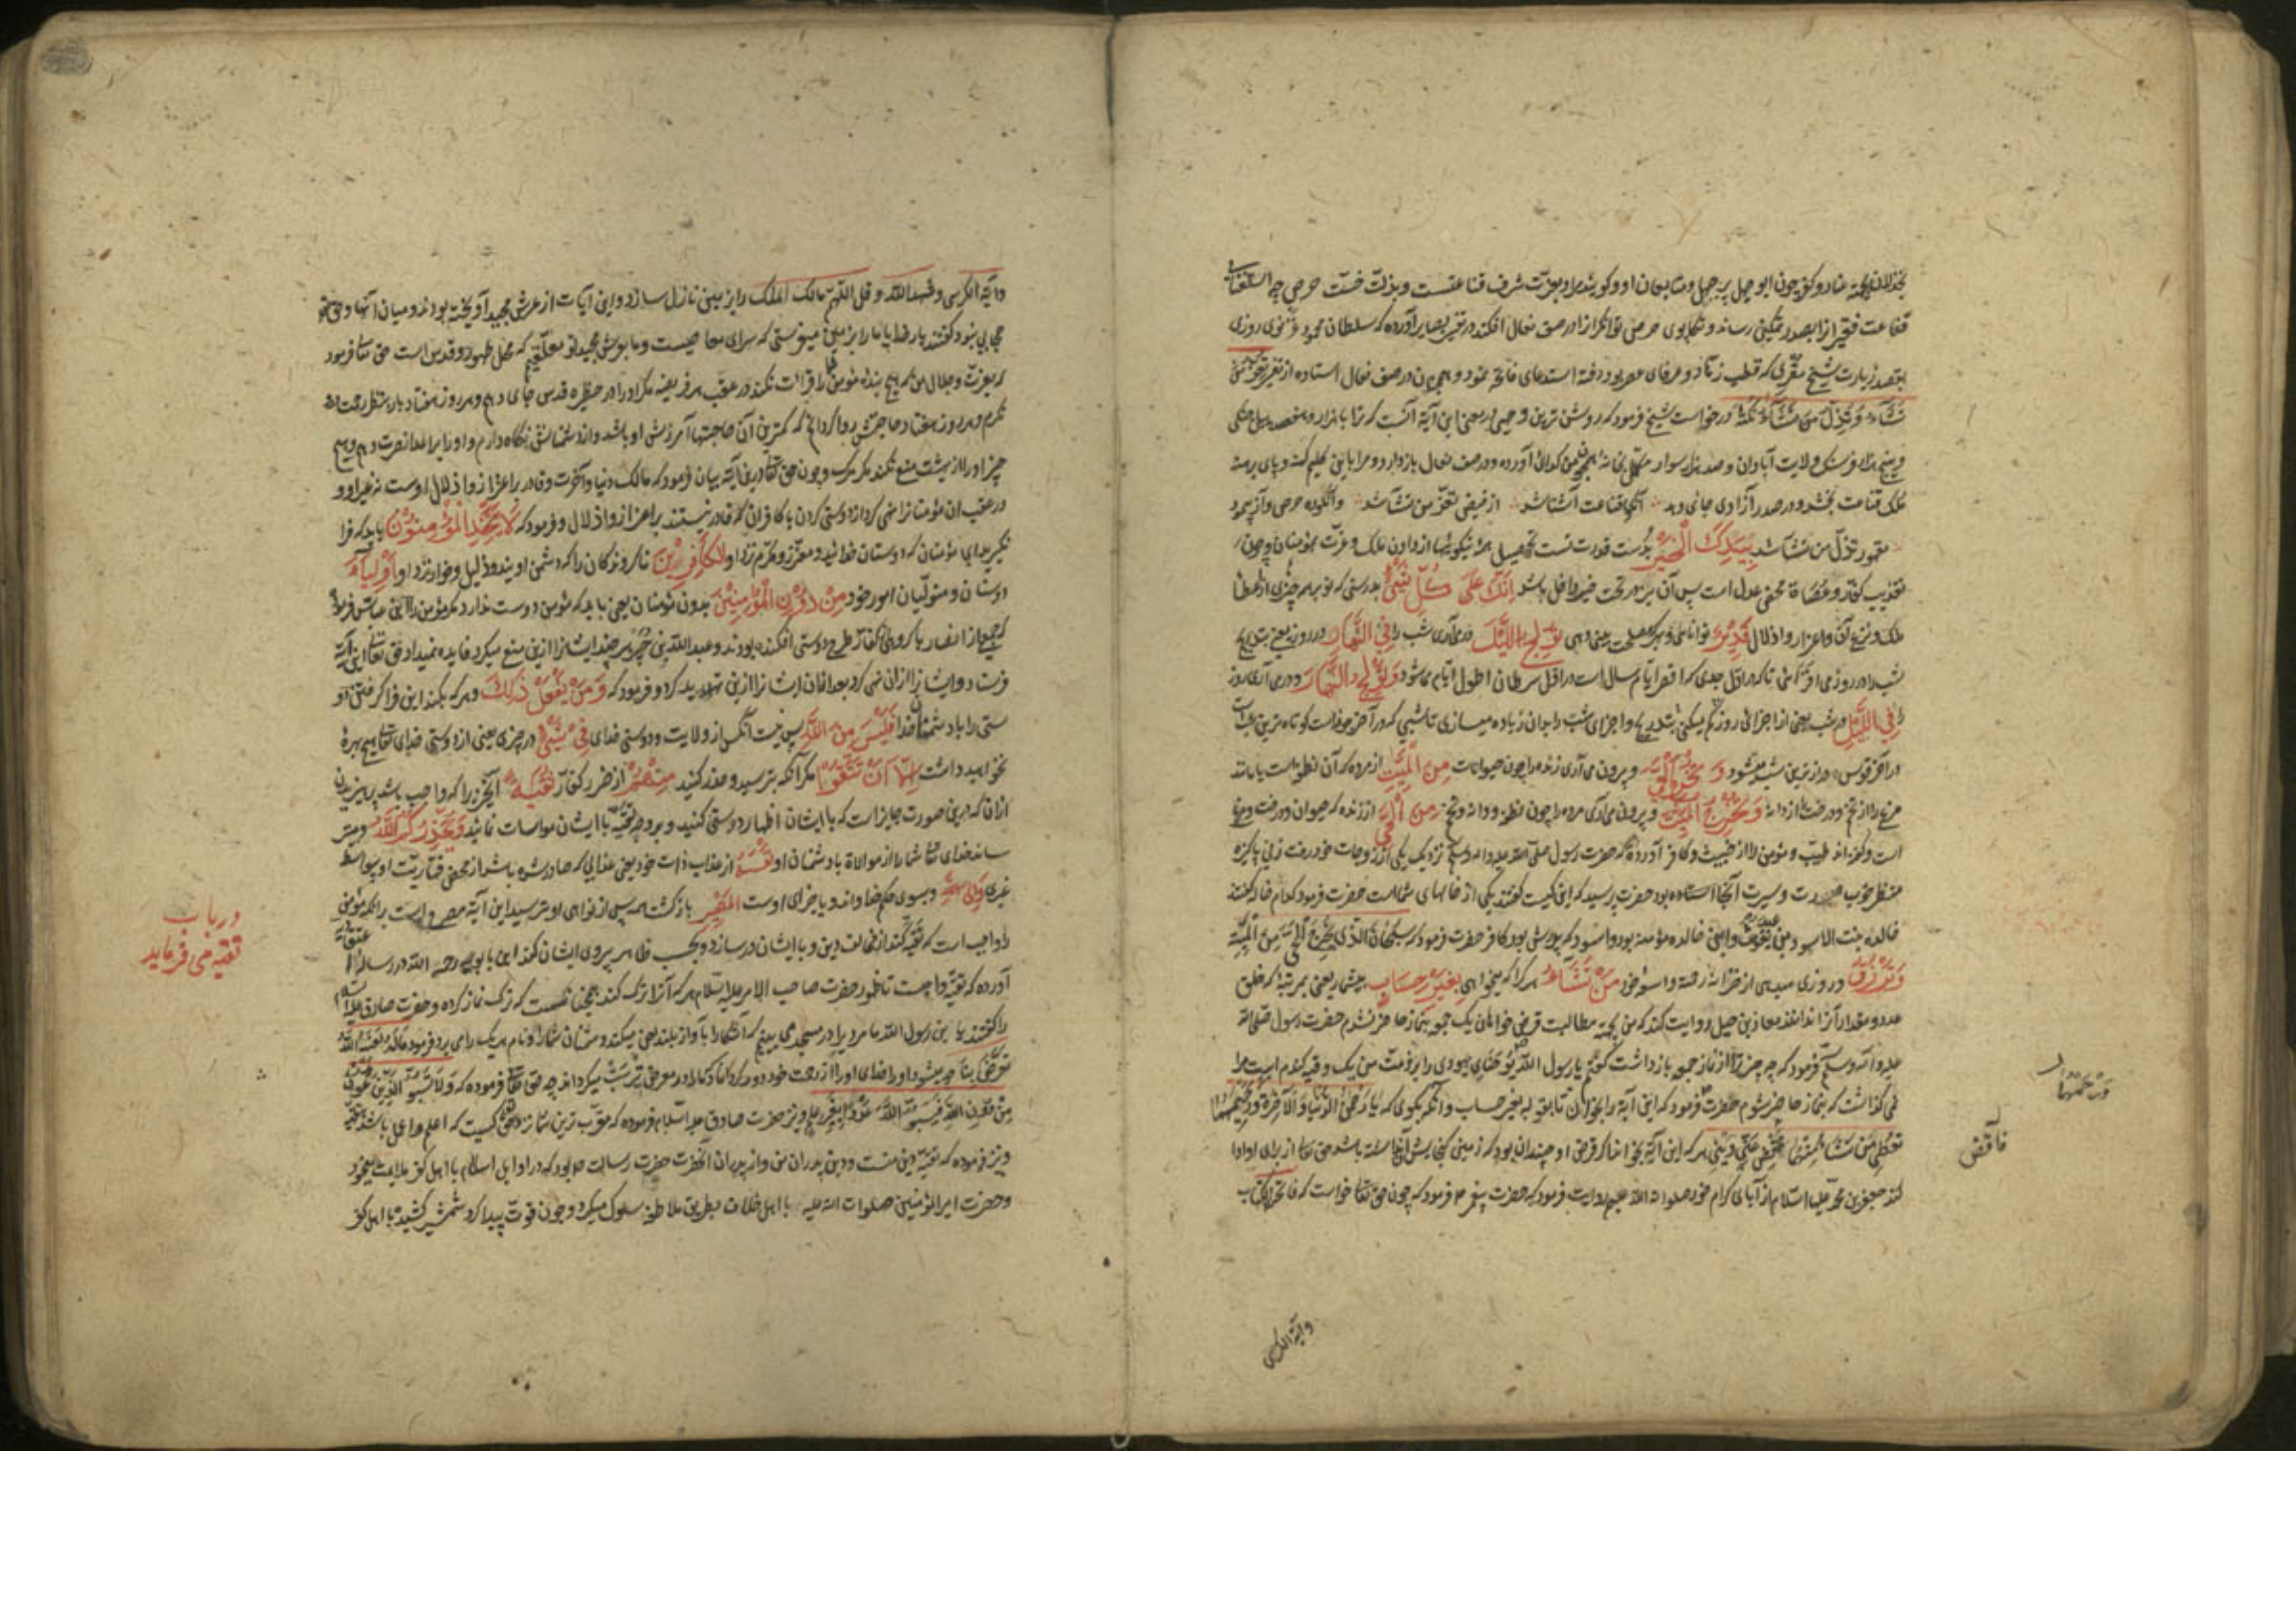 بخذلان بجهة عناد و کفر چون ابو جهل پر جهل و متابعان او و کویند مراد بعزت شرف قناعتست و بذلت خست حرص چه استغنای
قناعت فقیر را بصدر تمکین رساند و تکاپوی حرص توانکر را در صف نعال افکند در تفسیر بصایر آورده که سلطان محمود غزنوی روزی
بقصد زیارت شیخ مقری که قطب زهاد و عرفای عصر بود رفته استدعای فاتحه نمود و همچنان در صف نعال استاده از تفسیر تعز من
تشاء و تذل من تشاء نکتهٔ درخواست شیخ فرمود که روشن ترین وجهی در معنی این آیة آنست که ترا با هزار و هفصد پیل جنکی
و پنج هزار فرسنک ولایت آبادان و صد هزار سوار بکدائی آورده و در صف نعال بازدارد و مرا با این کلیم کهنه و پای برهنه
ملک قناعت بخشد و در صدر آزادی جای دهد آنکه بقناعت آشنا شد از فیض تعز من تشا شد و آنکو ره حرص و آز پیمود
مقهور تذل من تشا شد بِيَدِكَ الْخَيْرُ بدست قدرت تست تحصیل همهٔ نیکوئیها از دادن ملک و عزت مؤمنان و چون
تعذیب کفره و عصاة محض عدل است پس آن نیز در تحت خیر داخل باشد إِنَّكَ عَلَى كُلِّ شَيْءٍ بدرستی که تو بر هر چیزی از اعطا
ملک و نزع آن و اعزاز و اذلال قَدِيرٌ توانائی و بهر که مصلحت بینی دهی تُولِجُ اللَّيْلَ درمی آری شب را فِي النَّهَارِ در روز یعنی بتدریج
شب را در روز می افزائی تا که در اول جدی که اقصر ایام سال است در اول سرطان اطول ایام می شود وَتُولِجُ النَّهَارَ و درمی آری روز
را فِي اللَّيْلِ در شب یعنی از اجزای روز کم میکنی بتدریج و اجزای شب را بدان زیاده میسازی تا شبی که در آخر جوزاست کوتاه ترین شبهاست
در آخر قوس درازترین شبها میشود وَتُخْرِجُ الْحَيَّ و بیرون می آری زنده را چون حیوانات مِنَ الْمَيِّتِ از مرده که آن نطفه است یا مانند
مرغ را از تخم و درخت را از دانه وَتُخْرِجُ الْمَيِّتَ و بیرون می آری مرده را چون نطفه و دانه و تخم مِنَ الْحَيِّ از زنده که حیوان و درخت و مرغ
است و کفته اند طیب و مؤمن را از خبیث و کافر آورده که حضرت رسول صلی الله علیه و اله وسلم نزدیک یکی از زوجات خود رفت زنی پاکیزه
منظر خوب صورت و سیرت آنجا استاده بود حضرت پرسید که این کیست کفتند یکی از خالهای شماست حضرت فرمود کدام خاله کفتند
خالده بنت الاسود بن عبد یغوث و این خالده مؤمنه بود و اسود که پدرش بود کافر حضرت فرمود که سبحان الذی یخرج الحی من المیت
وَتَرْزُقُ و روزی میدهی از خزانه رحمت واسعه خود مَنْ تَشَاءُ هر که را که میخواهی بِغَيْرِ حِسَابٍ بیشمار یعنی بمرتبهٔ که خلق
عدد و مقدار آنرا ندانند معاذ بن جبل روایت کند که من بجهة مطالبت قرض خواهان یک جمعه بنماز حاضر نشدم حضرت رسول صلی الله
علیه و اله وسلم فرمود که چه چیز ترا از نماز جمعه بازداشت کفتم یا رسول الله یوحنای یهودی را بر ذمت من یک وقیه کندم است مرا
نمی کذاشت که بنماز حاضر شوم حضرت فرمود که این آیة را بخوان تا بقوله بغیر حساب و آنکه بکوی که یا رحمن الدنیا و الاخرة و رحیمهما
تعطی من تشا منهما اقض عنی دینی هر که این آیة بخواند اکر قرض او چندان بود که زمین کنجایش آن نداشته باشد حق تعا از برای او ادا
کند جعفر بن محمد علیهما السلام از آبای کرام خود صلوات الله علیهم روایت فرمود که حضرت پیغمبر ص فرمود که چون حق تعا خواست که فاتحة الکتاب
وآیة الکرسی
وآیة الکرسی و شهد الله و قل اللهم مالک الملک را بزمین نازل سازد و این آیات از عرش مجید آویخته بودند و میان آنها و حق
حجابی نبود کفتند بار خدایا ما را بزمین میفرستی که سرای معاصیست و ما بعرش مجید تو معلقیم که محل طهور و قدس است حق تعا فرمود
که بعزت و جلال من که هیچ بندهٔ مؤمن شما را قرائت نکند در عقب هر فریضه مکر او را در حظیره قدس جای دهم و هر روز هفتاد بار بنظر رحمت در او
نکرم و هر روز هفتاد حاجتش روا کردانم که کمترین آن حاجتها آمرزش او باشد و از دشمنانش نکاه دارم و او را بر اعدا نصرت دهم و هیچ
چیز او را از بهشت منع نکند مکر مرک و چون حق تعا در این آیة بیان فرمود که مالک دنیا و آخرت و قادر بر اعزاز و اذلال اوست نه غیر او و
در عقب ان مؤمنان را نهی کرد از دوستی کردن با کافران که قادر نیستند بر اعزاز و اذلال و فرمود که لَا يَتَّخِذِ الْمُؤْمِنُونَ باید که فرا
نکیرند ای مؤمنان که دوستان خدائید و معزز و مکرم نزد او الْكَافِرِينَ ناکرویدکان را که دشمن اویند و ذلیل و خوار نزد او أَوْلِيَاءَ
دوستان و متولیان امور خود مِنْ دُونِ الْمُؤْمِنِينَ بدون مؤمنان یعنی باید که مؤمن دوست ندارد مکر مؤمن را ابن عباس فرمود
که جمعی از انصار با کروهی از کفار طرح دوستی افکنده بودند و عبد الله بن جبیر هر چند ایشانرا ازین منع میکرد فایده نمیداد حق تعا این آیة
فرستاد و ایشانرا ازان نهی کرد بعد ازان ایشانرا ازین تهدید کرد و فرمود که وَمَنْ يَفْعَلْ ذَلِكَ و هر که بکند این فرا کرفتن دو
ستی را با دشمنان خدا فَلَيْسَ مِنَ اللَّهِ پس نیست آنکس از ولایت و دوستی خدای فِي شَيْءٍ در چیزی یعنی از دوستی خدای تعا هیچ بهرهٔ
نخواهد داشت إِلَّا أَنْ تَتَّقُوا مکر آنکه بترسید و حذر کنید مِنْهُمْ از ضرر کفار تُقَاةً آنچیزی را که واجب باشد پرهیزیدن
ازان که درین صورت جایز است که با ایشان اظهار دوستی کنید و بر وجه تقیه با ایشان مواسات نمائید وَيُحَذِّرُكُمُ اللَّهُ و میتر
ساند خدای تعا شما را از موالاة با دشمنان او نَفْسَهُ از عذاب ذات خود یعنی عذابی که صادر شود باشد از محض قهاریت او بیواسطه
غیری وَإِلَى اللَّهِ و بسوی حکم خداوند و یا جزای اوست الْمَصِيرُ بازکشت همه پس از نواهی او بترسید این آیة مصرح است برانکه مؤمن
را واجب است که تقیه کند از مخالف دین و با ایشان درسازد و بحسب ظاهر پیروی ایشان کند ابن بابویه رحمه الله در رساله اعتقادیه
آورده که تقیه واجبست تا ظهور حضرت صاحب الامر علیه السلام هر که آنرا ترک کند همچنانست که ترک نماز کرده و حضرت صادق علیه السلام
را کفتند یا بن رسول الله ما مردی را در مسجد می بینیم که آشکارا با آواز بلند لعن میکند دشمنان شما را و نام هر یک را می برد فرمود ماله لعنه الله
تعرض بنا چه میشود او را خدای او را از رحمت خود دور کرداناد که ما را در معرض سب میکرداند چه حق تعا فرموده که ولا تسبوا الذین یدعون
من دون الله فیسبوا الله عدوا بغیر علم و نیز حضرت صادق علیه السلام فرموده که مقرب ترین شما نزد حق کسیست که اعلم و اعمل باشد بتقیه
و نیز فرموده که تقیه دین منست و دین پدران من و از پدران آنحضرت حضرت رسالت ص بود که در اوایل اسلام با اهل کفر ملاعبت میفرمود
و حضرت امیر المؤمنین صلوات الله علیه با اهل خلاف بطریق ملاطفه سلوک میکرد و چون قوت پیدا کرد شمشیر کشیده با اهل کفر
در باب
تقیه می فرماید